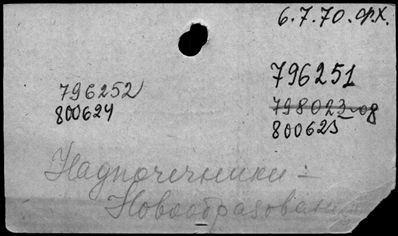 6.7.70. ф.х.
796252
800624
796251
798023-08
800623
Надпочечники -
Новообразования